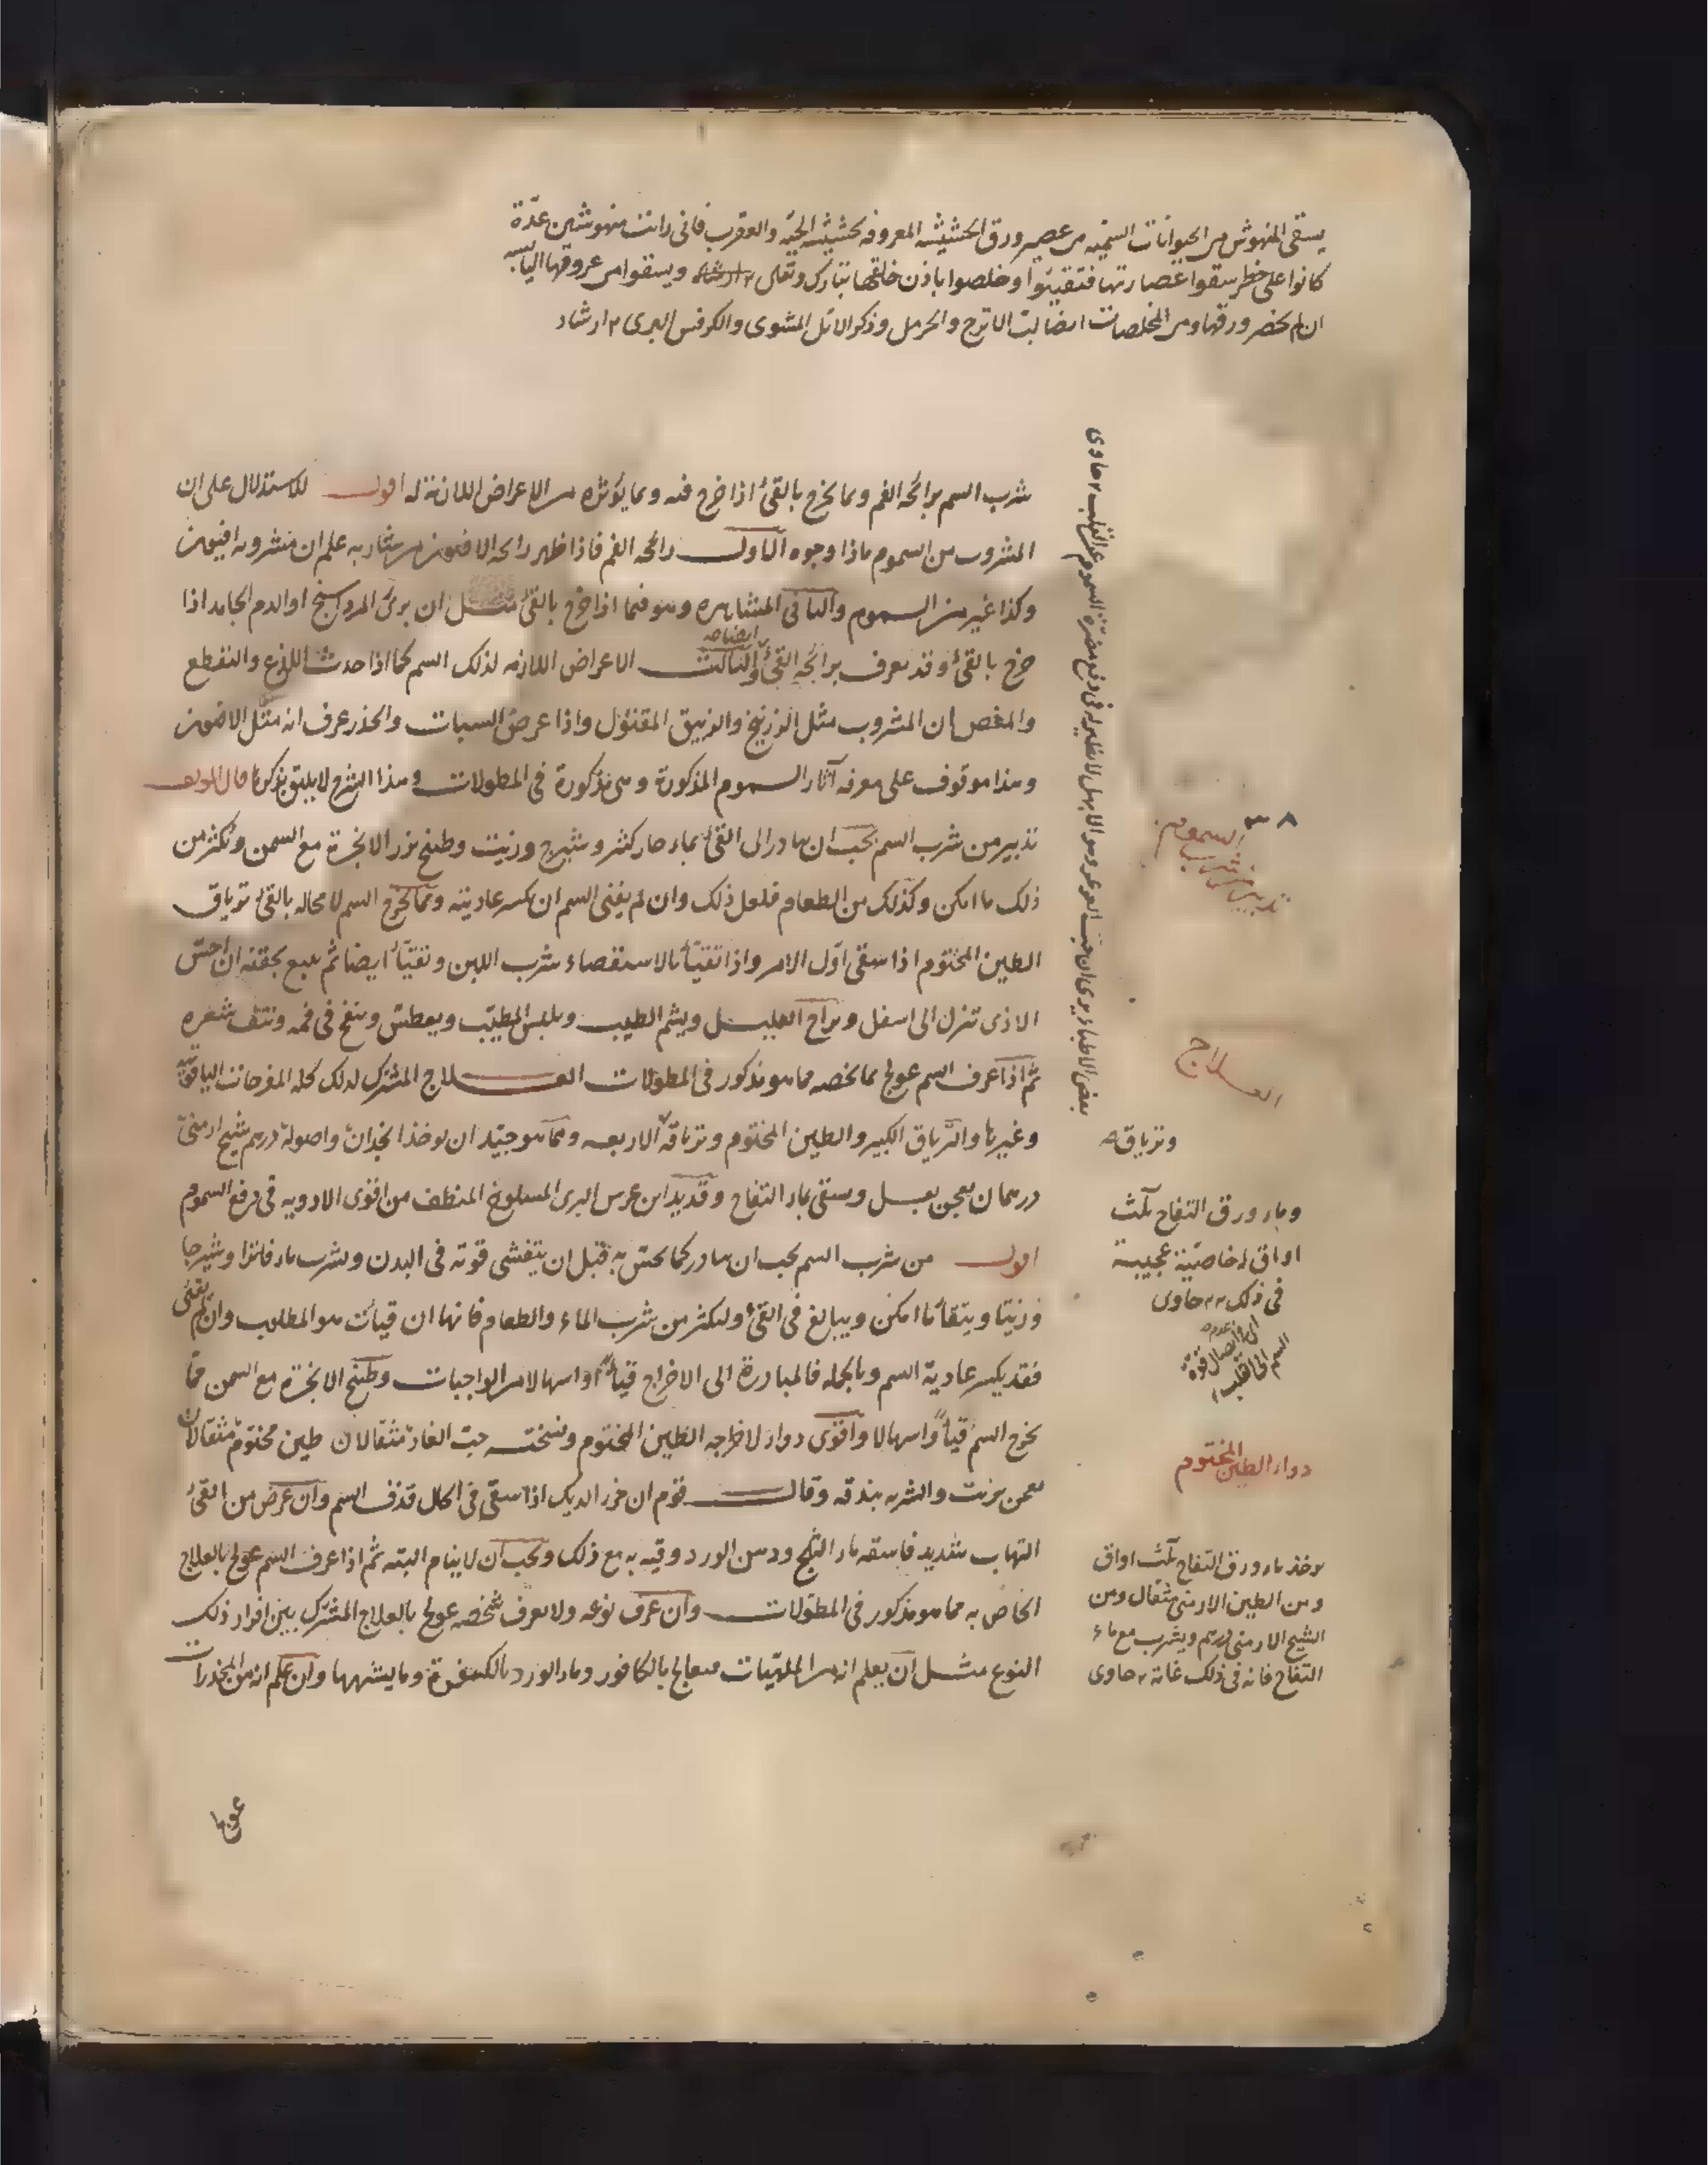 يسقى المنهوش من الحيوانات السمية من عصير ورق الحشيشة المعروفة بحشيشة الحية والعقرب فانى رأيت منهوشين عدّة
كانوا على خطر سقوا عصارتها فتقيئوا وخلصوا باذن خالقها تبارك وتعالى ويسقوا من عروقها اليابسة
ان لم يحضر ورقها ومن المخلصات ايضا لب الاترج والحرمل وذكر الايّل المشوى والكرفس البرى ١٢ ارشاد
شرب السم برائحة الفم وبما يخرج بالقئ اذا خرج فيه وبما يؤثره من الاعراض اللازمة له اقول للاستدلال على ان
المشروب من السموم ماذا وجوه الاول رائحة الفم فاذا ظهر رائحة الافيون من شاربه علم ان مشروبه افيون
وكذا غيره من السموم والثانى المشاهرة وهو فيما اذا خرج بالقئ مثل ان يرى المرداسنج او الدم الجامد اذا
خرج بالقئ وقد يعرف برائحة القئ ايضا والثالث الاعراض اللازمة لذلك السم كما اذا حدث اللذع والتقطع
والمغص ان المشروب مثل الزرنيخ والزيبق المقتول واذا عرض السبات والخدر عرف انه مثل الافيون
وهذا موقوف على معرفة آثار السموم المذكورة وهى مذكورة فى المطولات وهذا الشرح لا يليق بذكرها قال المؤلف
تدبير من شرب السم يجب ان يبادر الى القئ بماء حار كثير وشيرج وزيت وطبيخ بزر الانجرة مع السمن ويكثر من
ذلك ما امكن وكذلك من الطعام فلعل ذلك وان لم يغنى السم ان يكسر عاديته ومما يخرج السم لا محالة بالقئ ترياق
الطين المختوم اذا سقى اوّل الامر واذا تقيّأ بالاستقصاء شرب اللبن وتقيّأ ايضا ثم يتبع بحقنة ان احسّ
الاذى تنزل الى اسفل ويراح العليل ويشم الطيب ويلبس المطيّب ويعطش وينفخ فى فمه وينتف شعره
ثم اذا عرف السم عولج بما يخصه مما هو مذكور فى المطولات العلاج المشترك لذلك كله المفرحات الياقوتية
وغيرها والترياق الكبير والطين المختوم وترياقه الاربعة ومما هو جيّد ان يؤخذ انجدان واصوله درهم شيح ارمنى
درهمان يعجن بعسل ويسقى بماء التفاح وقديد ابن عرس البرى المسلوخ المنظف من اقوى الادوية فى دفع السموم
اقول من شرب السم يجب ان يبادر كما يحس به قبل ان يتفشى قوته فى البدن ويشرب ماء فاترا وشيرجا
وزيتا ويتقيأ ما امكن ويبالغ فى القئ وليكثر من شرب الماء والطعام فانها ان قيأت هو المطلوب وان لم يقئى
فقد يكسر عادية السم وبالجملة فالمبادرة الى الاخراج قيأً او اسهالا من الواجبات وطبيخ الانجرة مع السمن مما
يخرج السم قيأً واسهالا واقوى دواء لاخراجه الطين المختوم ونسخته حب الغار مثقالان طين مختوم مثقالان
يعجن بزيت والشربة بندقة وقال قوم ان خرء الديك اذا سقى فى الخل قذف السم وان عرض من القئ
التهاب شديد فاسقه ماء الثلج ودهن الورد وقيه به مع ذلك ويجب ان لا ينام البتة ثم اذا عرف السم عولج بالعلاج
الخاص به مما هو مذكور فى المطولات وان عرف نوعه ولا يعرف شخصه عولج بالعلاج المشترك بين افراد ذلك
النوع مثل ان يعلم انه من الملهبات فيعالج بالكافور وماء الورد وما يشبهها وان علم انه من المخدرات
عولج
٣٨
تدبير من شرب السموم
العلاج
وترياق
وماء ورق التفاح ثلث
اواق له خاصيّة عجيبة
فى ذلك ١٢ حاوى
دواء الطين المختوم
يؤخذ ماء ورق التفاح ثلث اواق
ومن الطين الارمنى مثقال ومن
الشيح الارمنى درهم ويشرب مع ماء
التفاح فانه فى ذلك غاية ١٢ حاوى